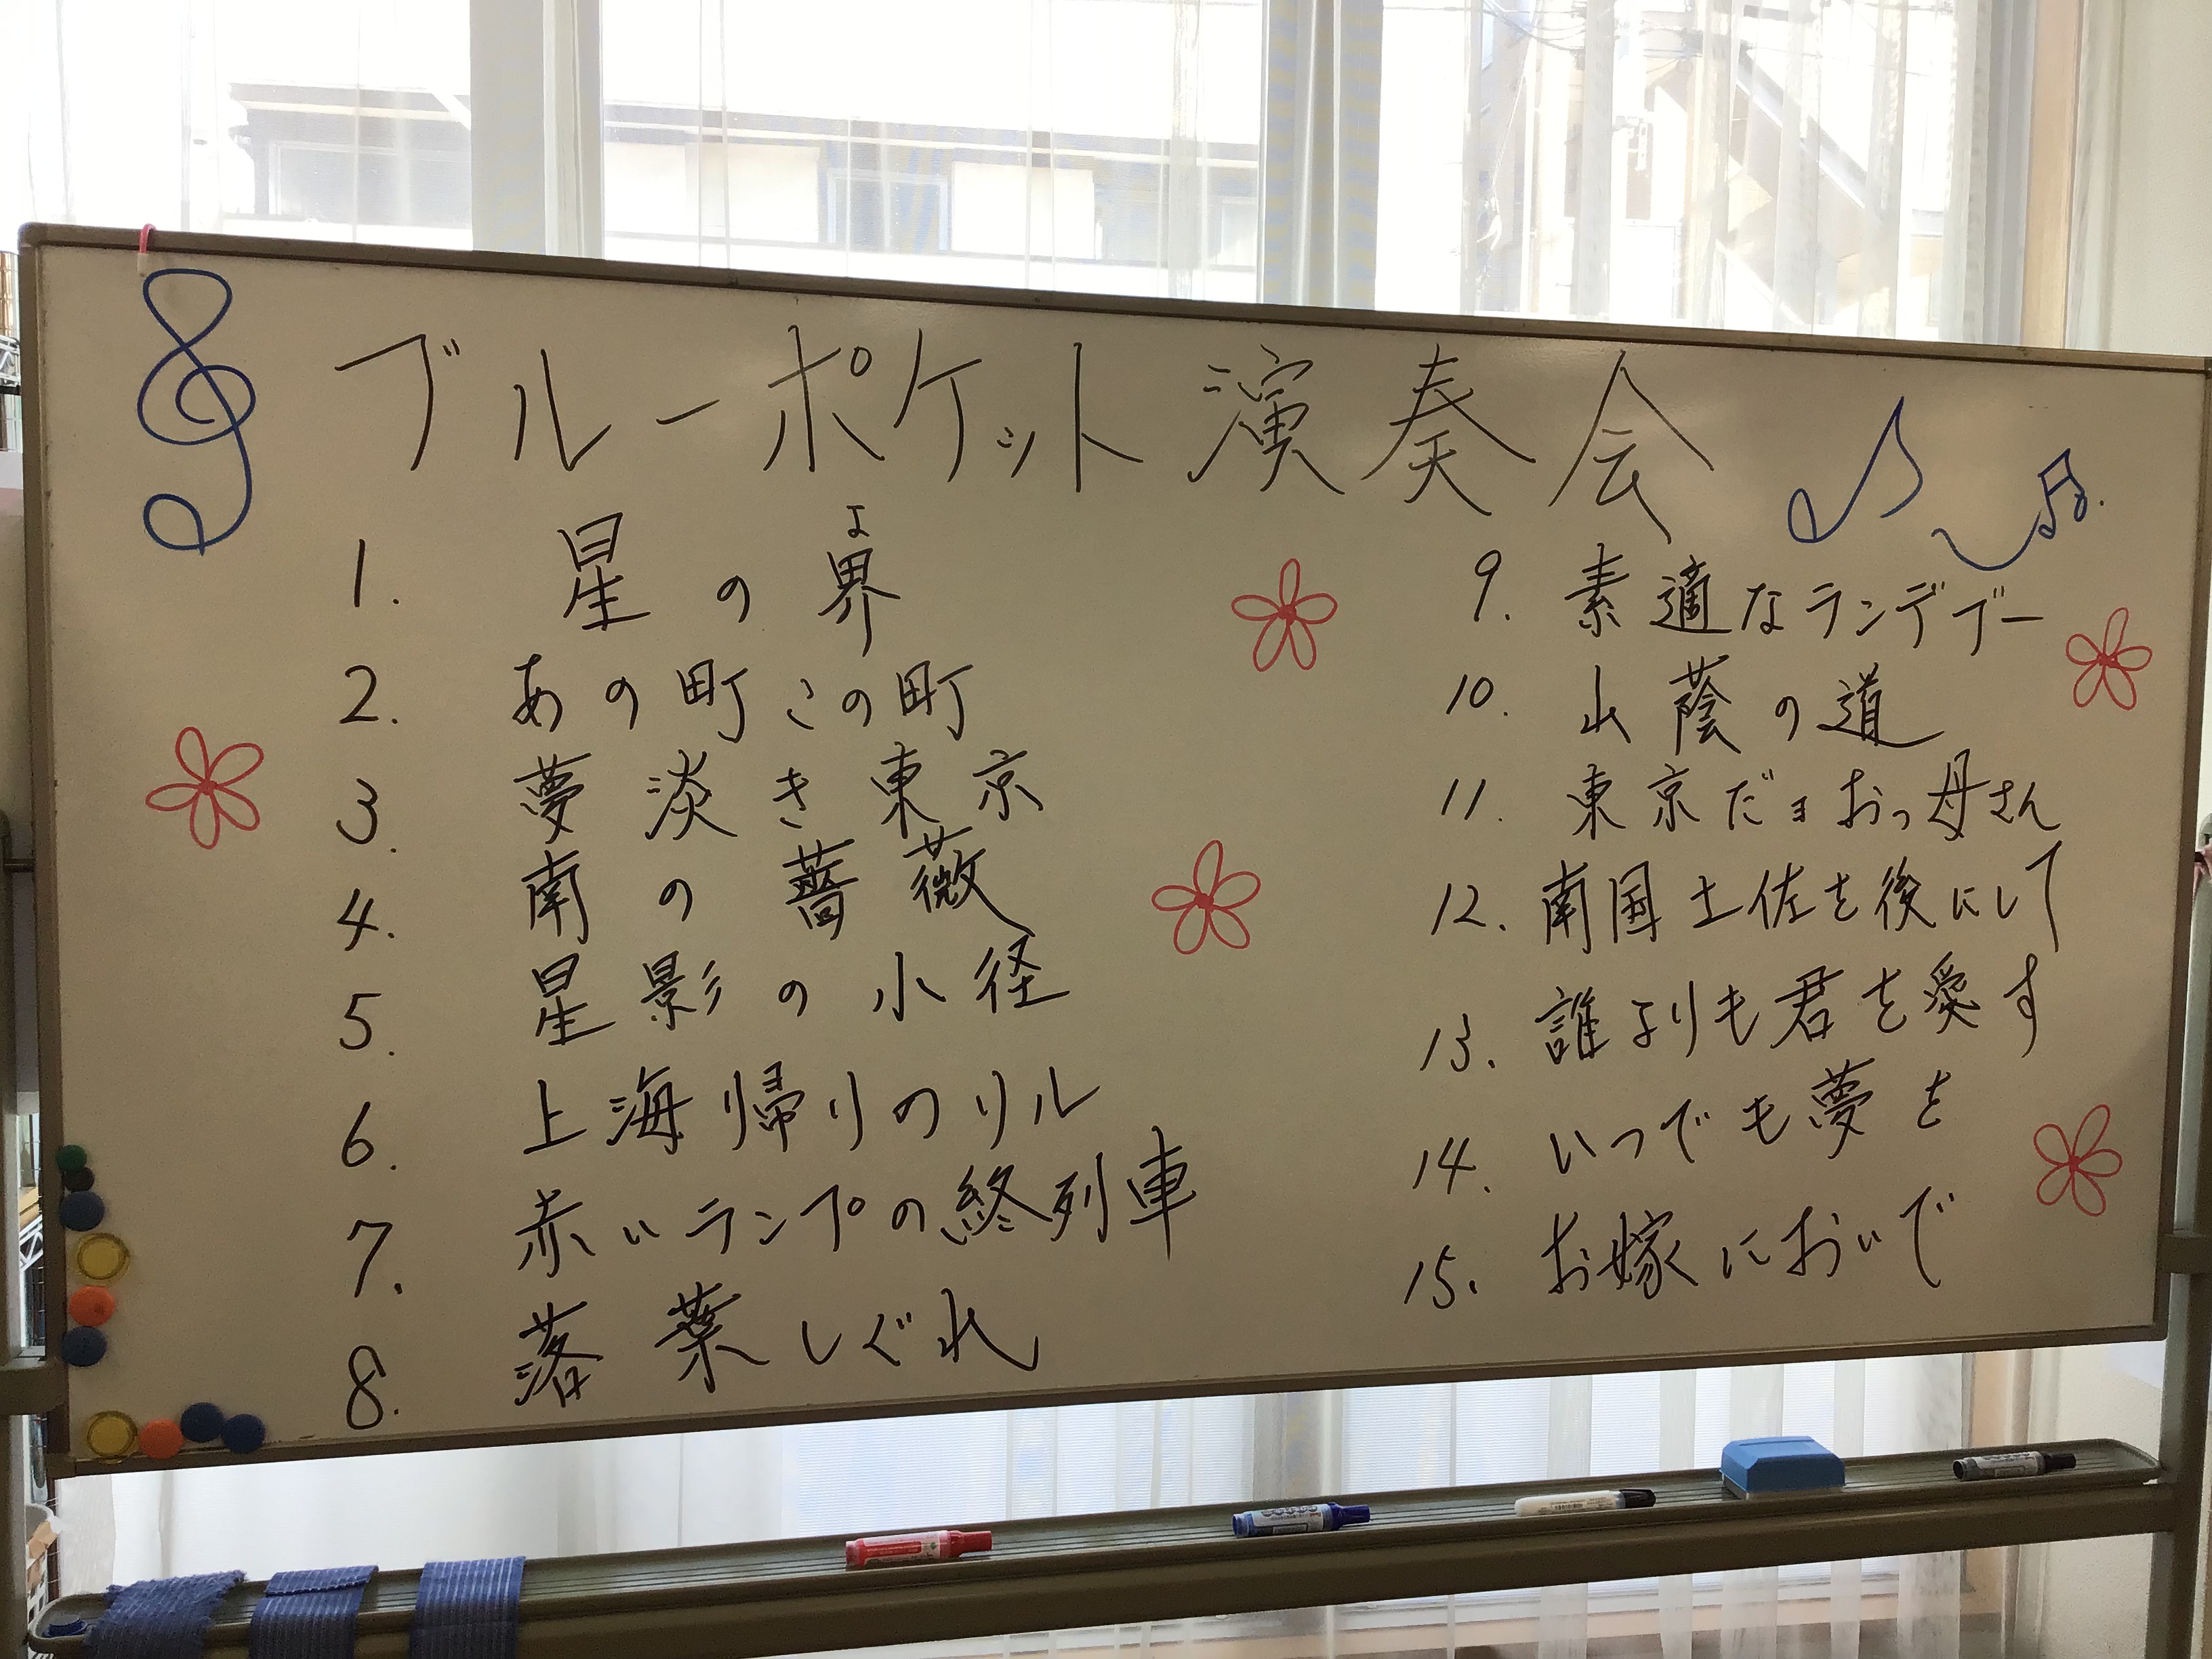 ブルーポケット演奏会
1. 星の界
よ
2. あの町この町
3. 夢淡き東京
4. 南の薔薇
5. 星影の小径
6. 上海帰りのリル
7. 赤いランプの終列車
8. 落葉しぐれ
9. 素適なランデブー
10. 山蔭の道
11. 東京だョおっ母さん
12. 南国土佐を後にして
13. 誰よりも君を愛す
14. いつでも夢を
15. お嫁においで